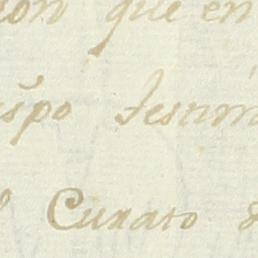 ion que en
spo Testim
Curato